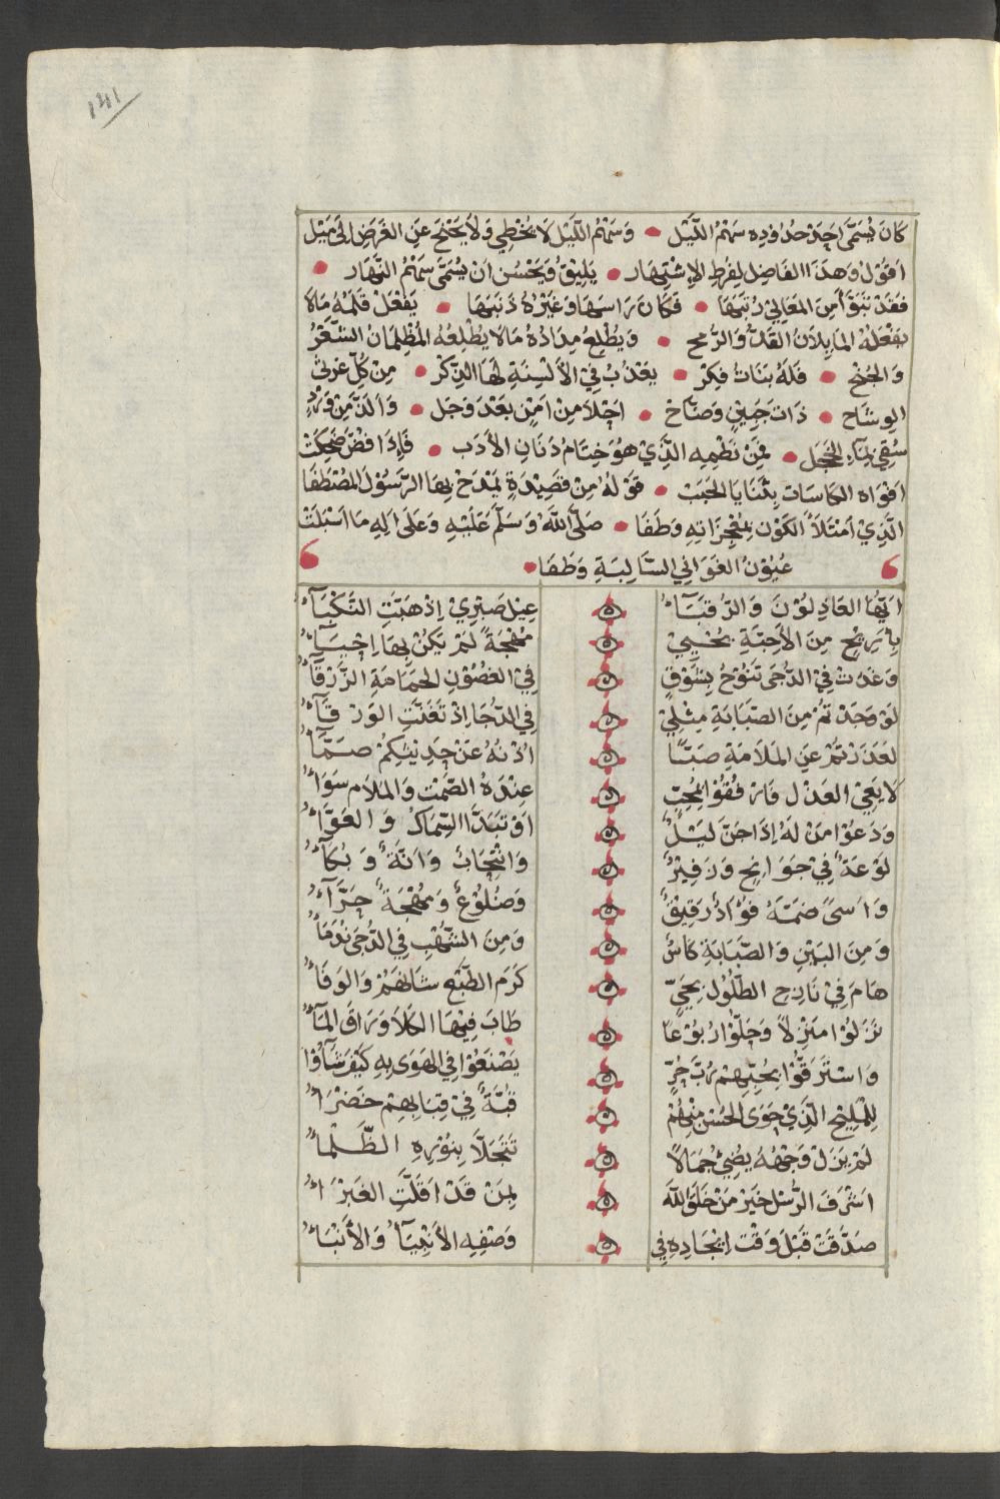 ١٣١
كَانَ يُسَمَّى اَحَدْ جدُوْدِه سَهْمُ اللَّيْل • وَسَهْمُ اللَّيْل لَا يُخْطِي وَلَا يَجْنَحْ عَنِ الغَرَضِ اِلَى مَيْل
اَقُوْلُ وَهذَا الفَاضِل لِفَرطِ الاِشْتِهَار • يَلِيْقُ وَيَحْسُن اَنْ يُسَمَّى سَهْمُ النَّهَار •
فقَدْ تَبَوَّأ مِنَ المَعَالِيْ رُتبَهَا • فَكَانَ رَاسَهَا وَغَيْرُهُ ذَنَبَهَا • يَفْعَلْ قَلَمُهُ مَا لَا
يفْعَلهُ المَايِلَان القَدُّ وَالرُّمح • وَيُطْلِعُ مِدَادُهُ مَا لَا يُطْلِعُهُ المُظْلِمَانِ الشَّعَرُ
وَالجُنْحُ • فَلَهُ بَنَاتُ فِكِرْ • يعْذُبُ فِيْ الاَلْسِنَةِ لَهَا الذِّكْر • مِنْ كُلِّ غَرثَى
الوِشَاح • ذَات جَبِيْنٍ وَضَّاح • اَحْلَا مِنْ اَمْنٍ بعْدَ وَجَل • وَاَلَذَّ مِنْ وَرْدٍ
سُقِيَ بِمَاءِ الخَجَل • فمِنْ نَظْمِهِ الَّذِيْ هُوَ خِتَامُ دَنَانِ الاَدَب • فَاِذَا فُضَّ ضَحِكَتْ
اَفْوَاهُ الكَاسَات بِثَنَايَا الحَبَبْ • قَوْلُهُ مِنْ قَصِيْدَةٍ يَمْدَحْ بِهَا الرَّسُوْل المُصْطَفَا
الَّذِيْ اَمْتَلَأَ الكَوْن بِمُعْجِزَاتِهِ وَطَفَا • صَلَّى اللَّهُ وَسَلَّمْ عَلَيْهِ وَعَلَى اَلِهِ مَا اَسْبَلَتْ
عُيُوْنُ الغَوَانِي السَّالِبَةِ وَطَفَا •
اَيُّهَا العَاذِلُوْنَ وَالرُّقَبَاءُ عِيْلَ صَبْرِيْ اِذْ هَبَّتِ النَّكْبَاءُ
بِاَرِيْجٍ مِنَ الاَحِبَّةِ يُحْيِيْ مُهْجَةً لَمْ يَكُنْ بِهَا اِحْيَاءُ
وَغَدَتْ فِيْ الدُّجَى تَنُوْحُ بِشَوْقٍ فِيْ الغُصُوْنِ الحَمَامَةِ الزَّرْقَاءُ
لَوْ وَجَدْتُمْ مِنَ الصَّبَابَةِ مِثْلِيْ فِي الدُّجَا اِذْ تَغَنَّتِ الوَرْقَاءُ
لعَدَدْتُمْ عَنِ المَلَامَةِ صَبًّا اُذْنُهُ عَنْ حَدِيْثِكِمْ صَمَّاءُ
لَا يَعِيْ العَذْل فَارْفُقُوْا بِمُحِبٍّ عِنْدَهُ الصَّمْت وَالمَلَام سَوَاءُ
وَدَعُوْا مَنْ لَهُ اِذَا جَنَّ لَيْلٌ اَوْ تَبَدَّا السِّمَاكُ وَالعَوَّاءُ
لَوْعَةٌ فِيْ جَوَانِحٍ وَزَفِيْرٌ وَانْتِحَابٌ وَاَنَّةٌ وَبُكَاءُ
وَاَسىً ضمَّهُ فُوَادٌ رَقِيْقٌ وَضُلُوْعٌ وَمُهْجَةٌ حَرَّاءُ
وَمِنَ البَيْنِ وَالصَّبَابَةِ كَاسٌ وَمِنَ الشُّهْبِ فِي الدُّجَى نُدَمَاءُ
هَامَ فِيْ نَازِحِ الطُّلُوْلِ بِحَيٍّ كَرَمِ الطَّبْعِ شَانُهُمْ وَالوَفَاءُ
نَزَلُوْا مَنْزِلاً وَحَلُّوْا رُبُوْعًا طَابَ فِيْهَا الكَلَا وَرَاقَ المَاءُ
وَاسْتَرَقُّوْا بِحُبِّهِمْ رُبَّ حُرٍّ يَصْنَعُوْا فِي الهَوَى بِهِ كَيْفَ شَاؤُا
لِلْمَلِيْحِ الَّذِيْ حَوَى الحُسْن مِنْهُمْ قُبَّةٌ فِيْ قِبَابِهِمْ خَضْرَاءُ
لَمْ يَزَلْ وَجْهُهُ يُضِيْ جَمَالاً تَتَجَلَّا بِنُوْرِهِ الظَّلْمَاءُ
اَشْرَفَ الرُّسْل خَيْرَ مَنْ خَلَقَ اللَّهُ لِمَنْ قَدْ اَقَلَّتِ الغَبْرَاءُ
صَدَّقَتْ قَبْلَ وَقْت اِيْجَادِهِ فِيْ وَصْفِهِ الاَنْبِيَاءُ وَالأَنْبَاءُ